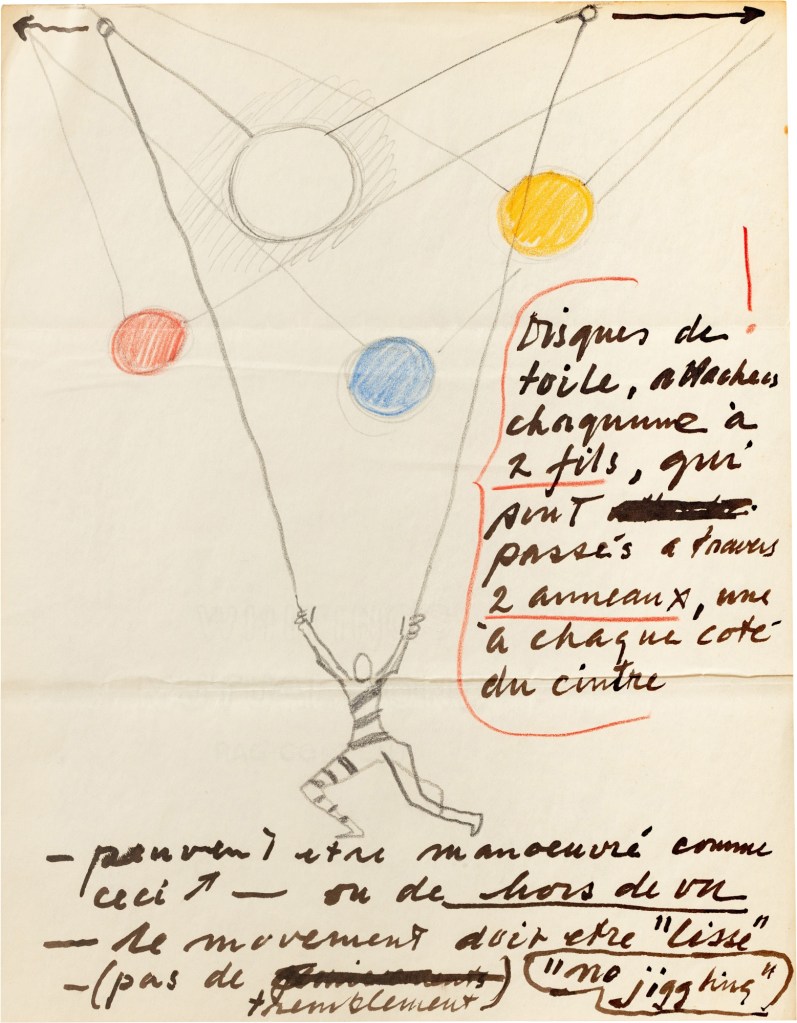 !
Disques de
toile, attachees
chaqunne à
2 fils, qui
sont
passés a travers
2 anneaux, une
à chaque coté
du cintre
– peuvent etre manoeuvré comme
ceci ↑ — ou de hors de vu
— le movement doit etre "lisse"
– (pas de
tremblement) ("no
jiggling")